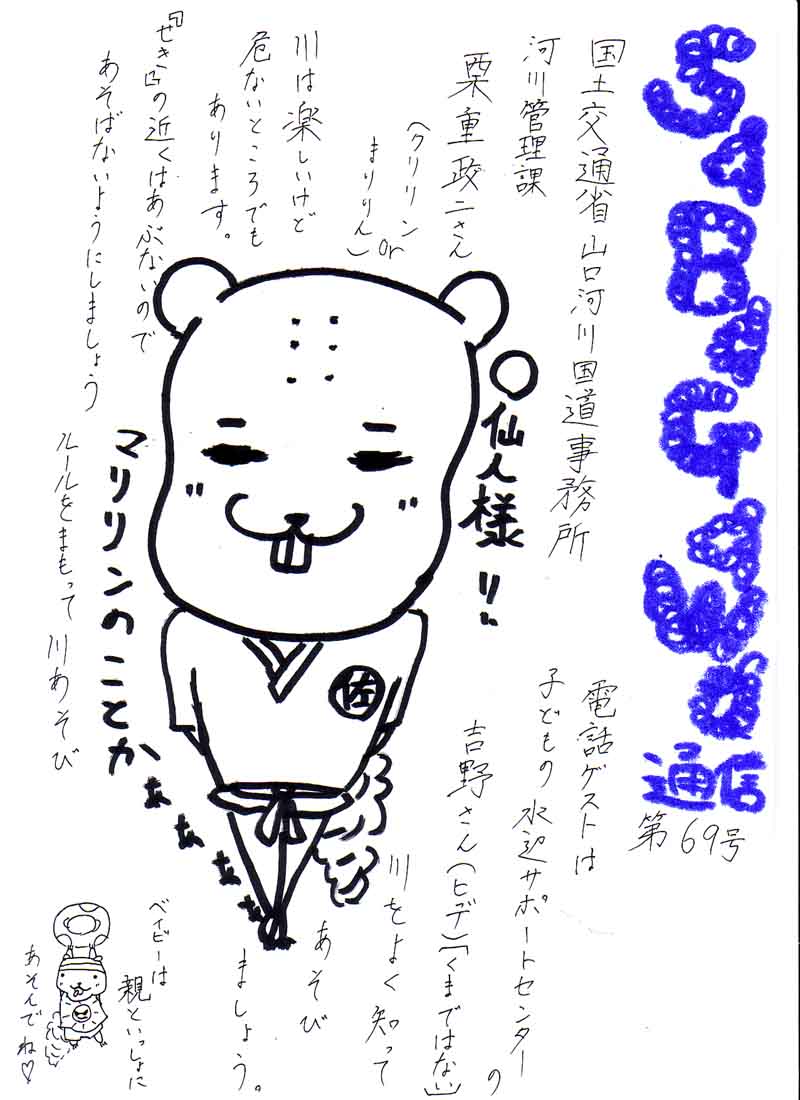 SaBaGaWa通信
第69号
国土交通省山口河川国道事務所
河川管理課
栗重政二さん
(クリリン or
まりりん)
川は楽しいけど
危ないところでも
あります。
『せき』の近くはあぶないので
あそばないようにしましょう
ルールをまもって川あそび
○仙人様!!
マリリンのことかぁぁぁぁ
佐
電話ゲストは
子どもの水辺サポートセンターの
吉野さん(ヒデ)「くまではない」
川をよく知って
あそび
ましょう。
ベイビーは
親といっしょに
あそんでね♡